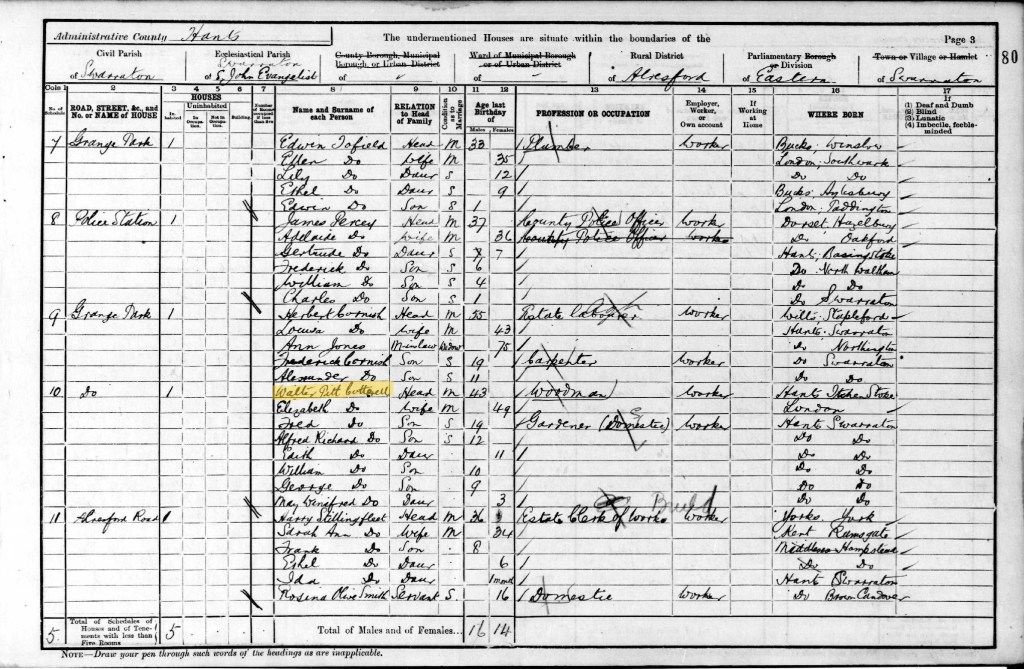 Administrative County Hants The undermentioned Houses are situate within the boundaries of the Page 3
80
Civil Parish Ecclesiastical Parish County Borough, Municipal Borough, or Urban District Ward of Municipal Borough or of Urban District Rural District Parliamentary Borough or Division Town or Village or Hamlet
of Swarraton of Swarraton St John Evangelist of of of Alresford of Eastern of Swarraton
Cols 1 2 3 4 5 6 7 8 9 10 11 12 13 14 15 16 17
No. of Schedule ROAD, STREET, &c., and No. or NAME of HOUSE HOUSES Inhabited Uninhabited In Occupation. Not in Occupation. Building. Name and Surname of each Person RELATION to Head of Family Condition as to Marriage Age last Birthday of Males Females PROFESSION OR OCCUPATION Employer, Worker, or Own account If Working at Home WHERE BORN If (1) Deaf and Dumb (2) Blind (3) Lunatic (4) Imbecile, feeble-minded
7 Grange Park 1 Edwin Tofield Head M 33 Plumber Worker Bucks, Winslow
Ellen Do Wife M 35 London, Southwark
Lily Do Daur S 12 Do Do
Ethel Do Daur S 9 Bucks, Aylesbury
Edwin Do Son S 1 London, Paddington
8 Police Station 1 James Percy Head M 37 County Police Officer Work Dorset, Hazelbury
Adelaide Do Wife M 36 County Police Officer Worker Do Oakford
Gertrude Do Daur S 7 7 Hants, Basingstoke
Frederick Do Son S 6 Do North Waltham
William Do Son S 4 Do Do
Charles Do Son S 1 Do Swarraton
9 Grange Park 1 Herbert Cornish Head M 55 Estate Labourer Worker Wilts, Stapleford
Louisa Do Wife M 43 Hants, Swarraton
Ann Jones M-inlaw Widow 75 Do Northington
Frederick Cornish Son S 19 Carpenter Worker Do Swarraton
Alexander Do Son S 11 Do Do
10 Do 1 Walter Pitt Cotterell Head M 43 Woodman Worker Hants Itchen Stoke
Elizabeth Do Wife M 49 London
Fred Do Son S 19 Gardener (Domestic) Worker Hants Swarraton
Alfred Richard Do Son S 12 Do Do
Edith Do Daur 11 Do Do
William Do Son 10 Do Do
George Do Son 9 Do Do
May Winifred Do Daur 3 Do Do
11 Alresford Road 1 Harry Stillingfleet Head M 36 Estate Clerk of Works Build Worker Yorks, York
Sarah Ann Do Wife M 34 Kent Ramsgate
Frank Do Son 8 Middlesex Hampstead
Ethel Do Daur 6 Do Do
Ida Do Daur 1 month Hants Swarraton
Rosina Olive Smith Servant S 16 Domestic Worker Do Brown Candover
5 Total of Schedules of Houses and of Tenements with less than Five Rooms 5 Total of Males and of Females... 16 14
NOTE—Draw your pen through such words of the headings as are inapplicable.